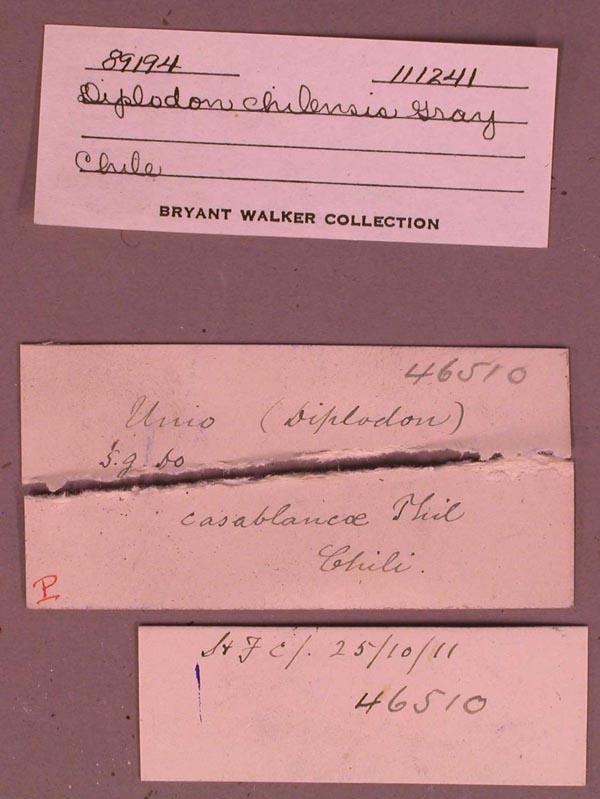 89194 111241
Diplodon chilensis Gray
Chile
BRYANT WALKER COLLECTION
46510
Unio (Diplodon)
S.g. Do
casablancæ Phil
Chili.
P
25/10/11
46510